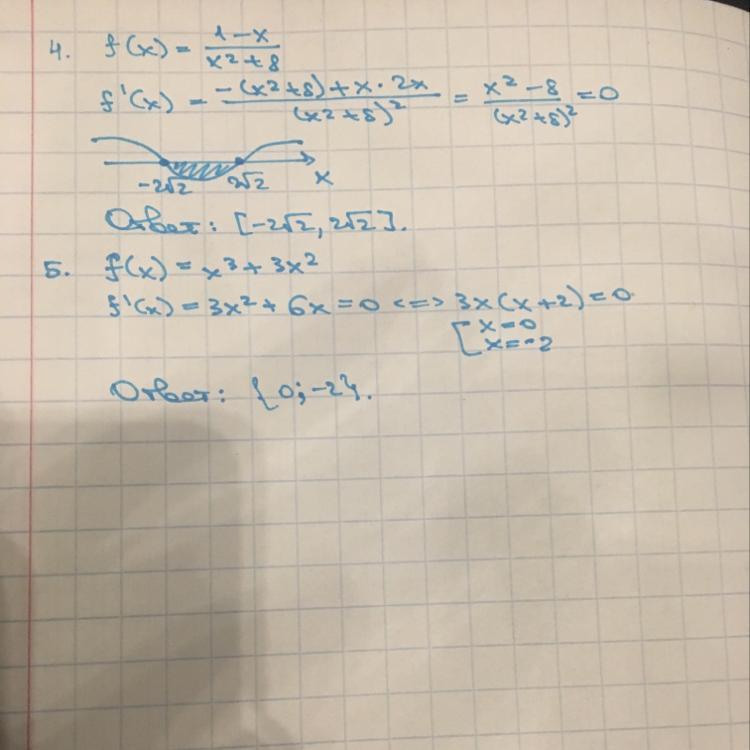 4. f(x) = (1-x)/(x²+8)
f'(x) = (-(x²+8)+x·2x)/(x²+8)² = (x²-8)/(x²+8)² = 0
-2√2 2√2 x
Ответ: [-2√2, 2√2].
5. f(x) = x³+3x²
f'(x) = 3x²+6x=0 <=> 3x(x+2)=0
[x=0
x=-2
Ответ: {0;-2}.